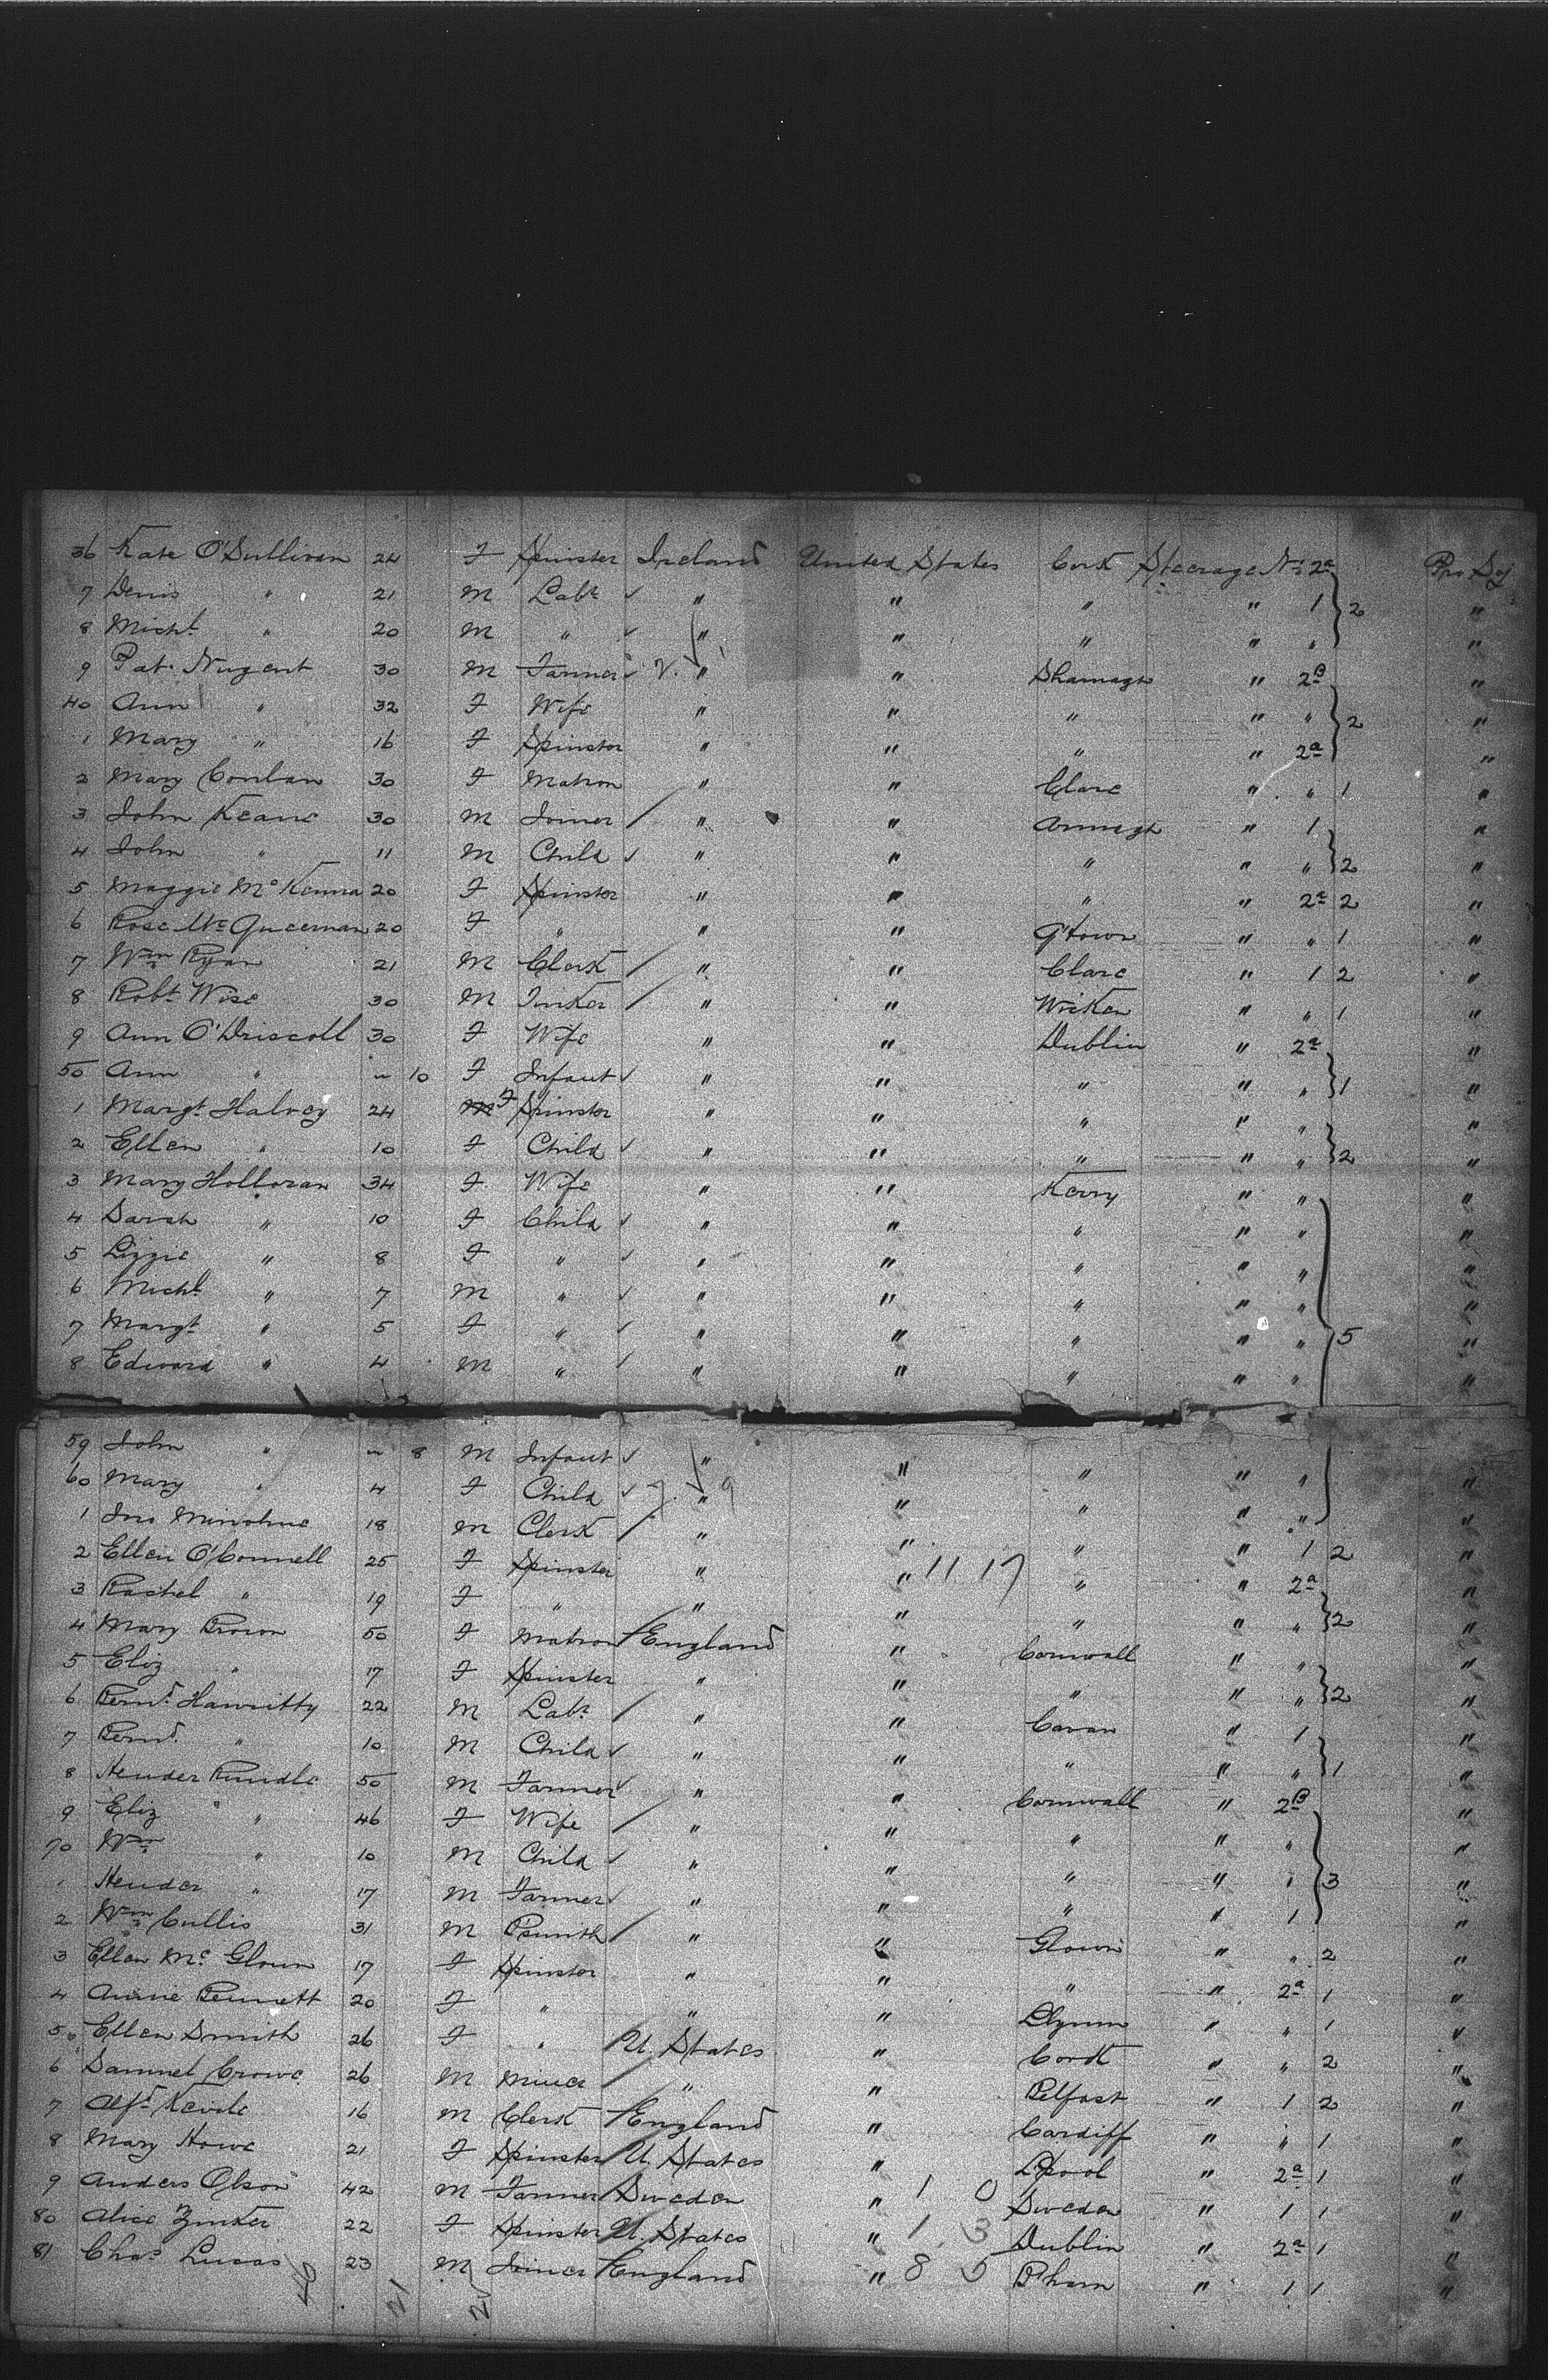 36 Kate O'Sullivan 24 F Spinster Ireland United States Cork Steerage No 2a Pro Soj
7 Denis " 21 M Labr " " " " 1 } 2 "
8 Michl " 20 M " " " " " " "
9 Pat. Nugent 30 M Farmer " " " 2B "
40 Ann " 32 F Wife " " " " " } 2 "
1 Mary " 16 F Spinster " " " " 2a "
2 Mary Conlan 30 F Matron " " Clare " " 1 "
3 John Keane 30 M Joiner " " Armagh " 1 "
4 John " 11 M Child " " " " " } 2 "
5 Maggie McKenna 20 F Spinster " " " " 2a 2 "
6 Rose 20 F " " " Q'town " " 1 "
7 Wm Ryan 21 M Clerk " " Clare " 1 2 "
8 Robt Wise 30 M " " " " 1 "
9 Ann O'Driscoll 30 F Wife " " Dublin " 2a "
50 Ann " " 10 F Infant " " " " " } 1 "
1 Margt Halvey 24 F Spinster " " " " " "
2 Ellen " 10 F Child " " " " " } 2 "
3 Mary Holloran 34 F Wife " " Kerry " " "
4 Sarah " 10 F Child " " " " " "
5 Lizzie " 8 F " " " " " " "
6 Michl " 7 M " " " " " " "
7 Margt " 5 F " " " " " " } 5 "
8 Edward " 4 M " " " " " " "
59 John " " 8 M Infant " " " " " "
60 Mary " 4 F Child " " " " " "
1 Jno Minohue 18 M Clerk " " " " 1 2 "
2 Ellen O'Connell 25 F Spinster " " 11 17 " " 2a "
3 Rachel " 19 F " " " " " " } 2 "
4 Mary Brown 50 F Matron England " Cornwall " " "
5 Eliz " 17 F Spinster " " " " " } 2 "
6 Bernd. Hawritty 22 M Labr " " Cavan " 1 "
7 Bernd. " 10 M Child " " " " " } 1 "
8 Hender Rundle 50 M Farmer " " Cornwall " 2B "
9 Eliz " 46 F Wife " " " " " "
70 Wm " 10 M Child " " " " " } 3 "
1 Hender " 17 M Farmer " " " " 1 "
2 Wm Cullis 31 M " " " " 2 "
3 Ellen Mc 17 F Spinster " " " " 2a 1 "
4 Annie Bennett 20 F " " " " " 1 "
5 Ellen Smith 26 F " U. States " Cork " " 2 "
6 Samuel Crowe 26 M Miner " " Belfast " 1 2 "
7 Alfd 16 M Clerk England " Cardiff " " 1 "
8 Mary Howe 21 F Spinster U. States " L'pool " 2a 1 "
9 Anders Olson 42 M Farmer Sweden " 1 0 Sweden " 1 1 "
80 Alice 22 F Spinster U. States " 1 3 Dublin " 2a 1 "
81 Chas Lucas 23 M Joiner England " 8 5 B'ham " 1 1 "